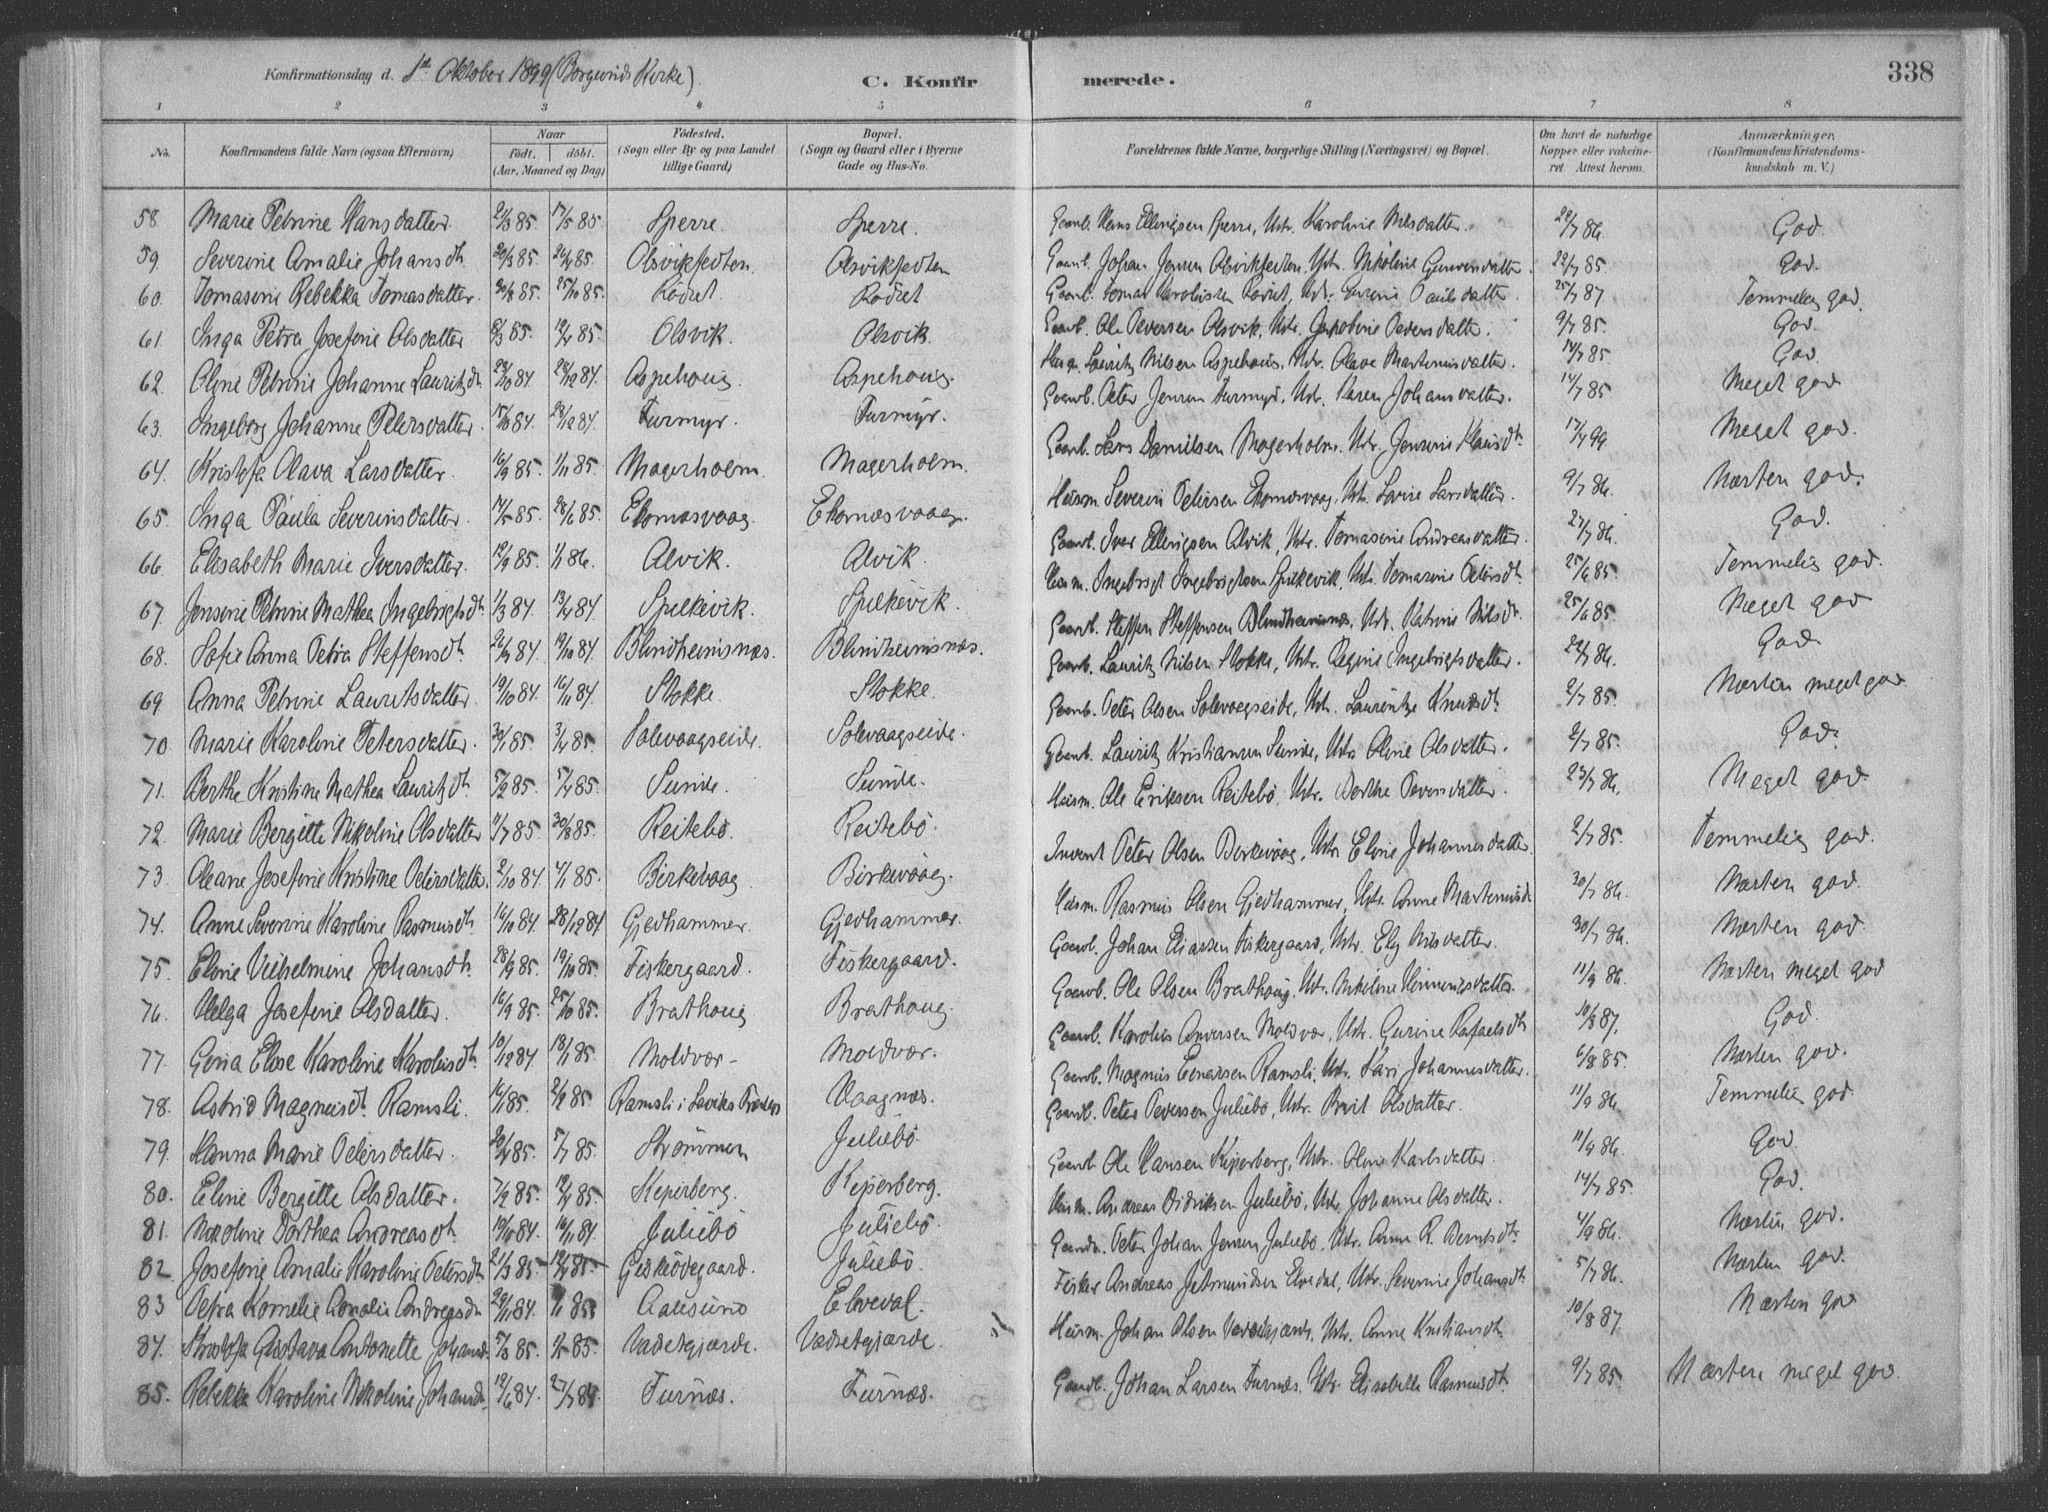 Konfirmationsdag d. 1ste Oktober 1899 (Borgunds Kirke). C. Konfirmerede. 338
1 2 3 4 5 6 7 8
No. Konfirmandens fulde Navn (ogsaa Efternavn) Naar født. døbt. (Aar, Maaned og Dag) Fødested. (Sogn eller By og paa Landet tillige Gaard) Bopæl. (Sogn og Gaard eller i Byerne Gade og Hus-No. Forældrenes fulde Navne, borgerlige Stilling (Næringsvei) og Bopæl. Om havt de naturlige Kopper eller vakcineret. Attest herom. Anmærkninger. (Konfirmandens Kristendomskundskab m. V.)
58. Marie Petrine Hansdatter 2/3 85. 17/5 85 Sperre. Sperre. Gaardb. Hans Ellingsen Sperre, Hstr. Karoline Nilsdatter. 22/7 86. God
59. Severine Amalie Johansdtr 20/3 85. 26/4 85. Olsvikfedten Olsvikfedten Gaardb. Johan Jensen Olsvikfedten. Hstr. Nikoline 22/7 85. God.
60. Tomasine Rebekka Tomasdatter. 30/8 85. 25/10 85. Rødset Rødset Gaardb. Tomas Karolissen Rødset, Hstr. Paulsdatter. 25/7 87 Temmelig god.
61. Inga Petra Josefine Olsdatter 8/3 85. 12/4 85. Olsvik. Olsvik. Gaardb. Ole Pedersen Olsvik, Hstr. Jakobine Pedersdatter. 9/7 85. God.
62. Oline Petrine Johanne Lauritzdtr 29/10 84 28/12 84. Aspehoug. Aspehoug. Husm. Lauritz Nilsen Aspehoug, Hstr. Olave Martinusdatter. 14/7 85 God.
63. Ingeborg Johanne Petersdatter. 15/10 84. 28/12 84. Furmyr. Furmyr. Gaardb. Peter Jensen Furmyr. Hstr. Karen Johansdatter. 14/7 85 Meget god
64. Kristofa Olava Larsdatter. 16/9 85. 1/11 85. Magerholm. Magerholm. Gaardb. Lars Danielsen Magerholm. Hstr. Jensine Klausdtr. 17/7 99 Meget god.
65. Inga Paula Severinsdatter. 14/5 85. 28/6 85. Ekornæsvaag. Ekornæsvaag. Husm. Severin Petersen Ekornæsvaag, Hstr. Lovise Larsdatter. 9/7 86. Næsten god.
66. Elisabeth Marie Iversdatter. 12/9 85. 1/1 86. Alvik. Alvik. Gaardb. Iver Ellingsen Alvik, Hstr. Tomasine Andreasdatter. 27/7 86. God.
67. Jensine Petrine Mathea Ingebrigtsdtr. 1/3 84. 13/4 84 Spilkevik. Spilkevik. Husm. Ingebrigt Ingebrigtsen Spilkevik, Hstr. Tomasine Petersdtr. 25/6 85. Temmelig god.
68. Sofie Anna Petra Steffensdtr. 26/9 84 19/10 84. Blindheimsnæs. Blindheimsnæs. Gaardb. Steffen Steffensen Blindheimsnæs, Hstr. Katrine Nilsdtr. 25/6 85. Meget god
69. Anna Petrine Lauritsdatter. 19/10 84. 16/11 84 Stokke. Stokke. Gaardb. Lauritz Nilsen Stokke, Hstr. Regine Ingebrigtsdatter. 22/7 86. God
70. Marie Karoline Petersdatter. 30/1 85. 3/4 85. Solevaagseide. Solevaagseide. Gaardb. Peter Olsen Solevaagseide, Hstr. Laurentze Knudsdtr. 2/7 85. Næsten meget god
71. Berthe Kristine Mathea Lauritzdtr. 5/2 85. 5/4 85. Sunde. Sunde. Gaardb. Lauritz Kristiansen Sunde, Hstr. Oline Olsdatter. 2/7 85. God.
72. Marie Bergitte Nikoline Olsdatter 11/7 85. 30/8 85. Reitebø. Reitebø. Husm. Ole Eriksen Reitebø, Hstr. Berthe Pedersdatter. 23/7 86. Meget god.
73. Oleane Josefine Kristine Petersdatter. 2/10 84. 4/1 85. Birkevaag Birkevaag. Peter Olsen Birkevaag, Hstr. Eline Johannesdatter. 2/7 85. Temmelig god.
74. Anne Severine Karoline Rasmusdtr. 16/10 84. 28/12 84 Gjedhammer. Gjedhammer. Husm. Rasmus Olsen Gjedhammer, Hstr. Anne Martinusdtr 30/7 86. Næsten god.
75. Eline Vilhelmine Johansdtr. 28/9 85. 19/10 85. Fiskergaard. Fiskergaard. Gaardb. Johan Eliassen Fiskergaard, Hstr. Elg Nilsdatter. 30/7 86. Næsten god.
76. Helga Josefine Olsdatter. 16/9 85. 25/10 85. Brathoug Brathoug. Gaardb. Ole Olsen Brathoug. Hstr. Nikoline Henningsdatter. 11/9 86. Næsten meget god
77. Gina Elise Karoline Karolisdtr. 10/12 84 18/1 85. Moldvær - Moldvær. Gaardb. Karolus Andersen Moldvær, Hstr. Gurine Rafaelsdtr 10/8 87. God.
78. Astrid Magnusdtr. Ramsli. 16/1 85. 2/2 85. Ramsli i Laviks Præstegj. Vaagnæs. Gaardb. Magnus Einarsen Ramsli, Hstr. Kari Johannesdatter. 6/8 85. Næsten god.
79. Hanna Marie Petersdatter. 20/4 85. 5/7 85. Strømmen Juliebø Gaardb. Peter Pedersen Juliebø, Hstr. Brit Olsdatter. 11/9 86. Temmelig god
80. Eline Bergitte Olsdatter. 7/2 85. 12/4 85. Kiperberg. Kiperberg. Gaardb. Ole Hansen Kiperberg, Hstr. Oline Karlsdatter. 11/9 86. God.
81. Nikoline Dorthea Andreasdtr. 19/10 84. 16/11 84 Juliebø Juliebø. Husm. Andreas Didriksen Juliebø, Hstr. Johanne Olsdatter. 14/7 85. God.
82. Josefine Amalie Karoline Petersdtr 21/3 85 12/4 85 Giskødegaard. Juliebø. Gaardb. Peter Johan Jensen Juliebø. Hstr. Anne R. Berntsdtr. 4/9 86. Næsten god.
83 Petra Kornelie Amalie Andreasdtr 29/11 84. 85 Aalesund Elvedal. Fisker Andreas Jetmundsen Elvedal, Hstr. Severine Johansdtr. 5/7 86. Næsten god.
84. Kristofa Gustava Antonette Johansdtr. 5/3 85. 85. Vadsetgjærde. Vadsetgjærde. Husm. Johan Olsen Vadsetgjærde, Hstr. Anne Kristiansdtr. 10/8 87. Næsten god
85. Rebekka Karoline Nikoline Johansdtr. 12/6 84. 27/7 84. Furnæs. Furnæs. Gaardb. Johan Larsen Furnæs. Hstr. Elisabeth Rasmusdtr. 9/7 85. Næsten meget god.